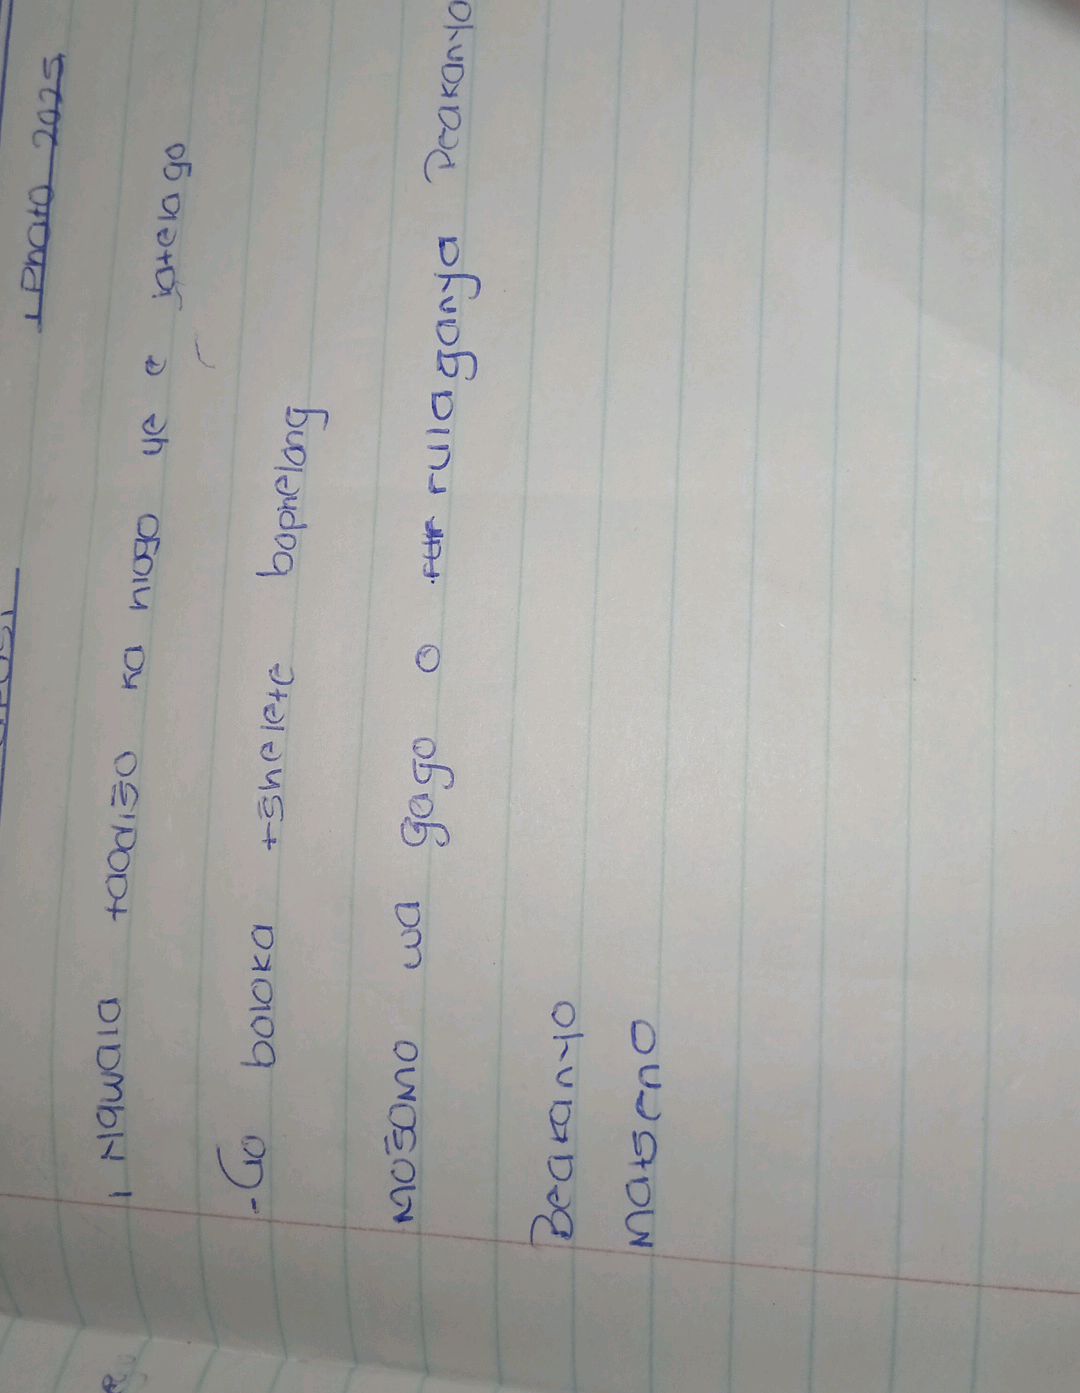 Phato 2025
1 Ngwala taodišo ka hlogo ye e latelago
- Go boloka tšhelete bophelong
Mošomo wa gago o rulaganya Peakanyo
Beakanyo
Matseno